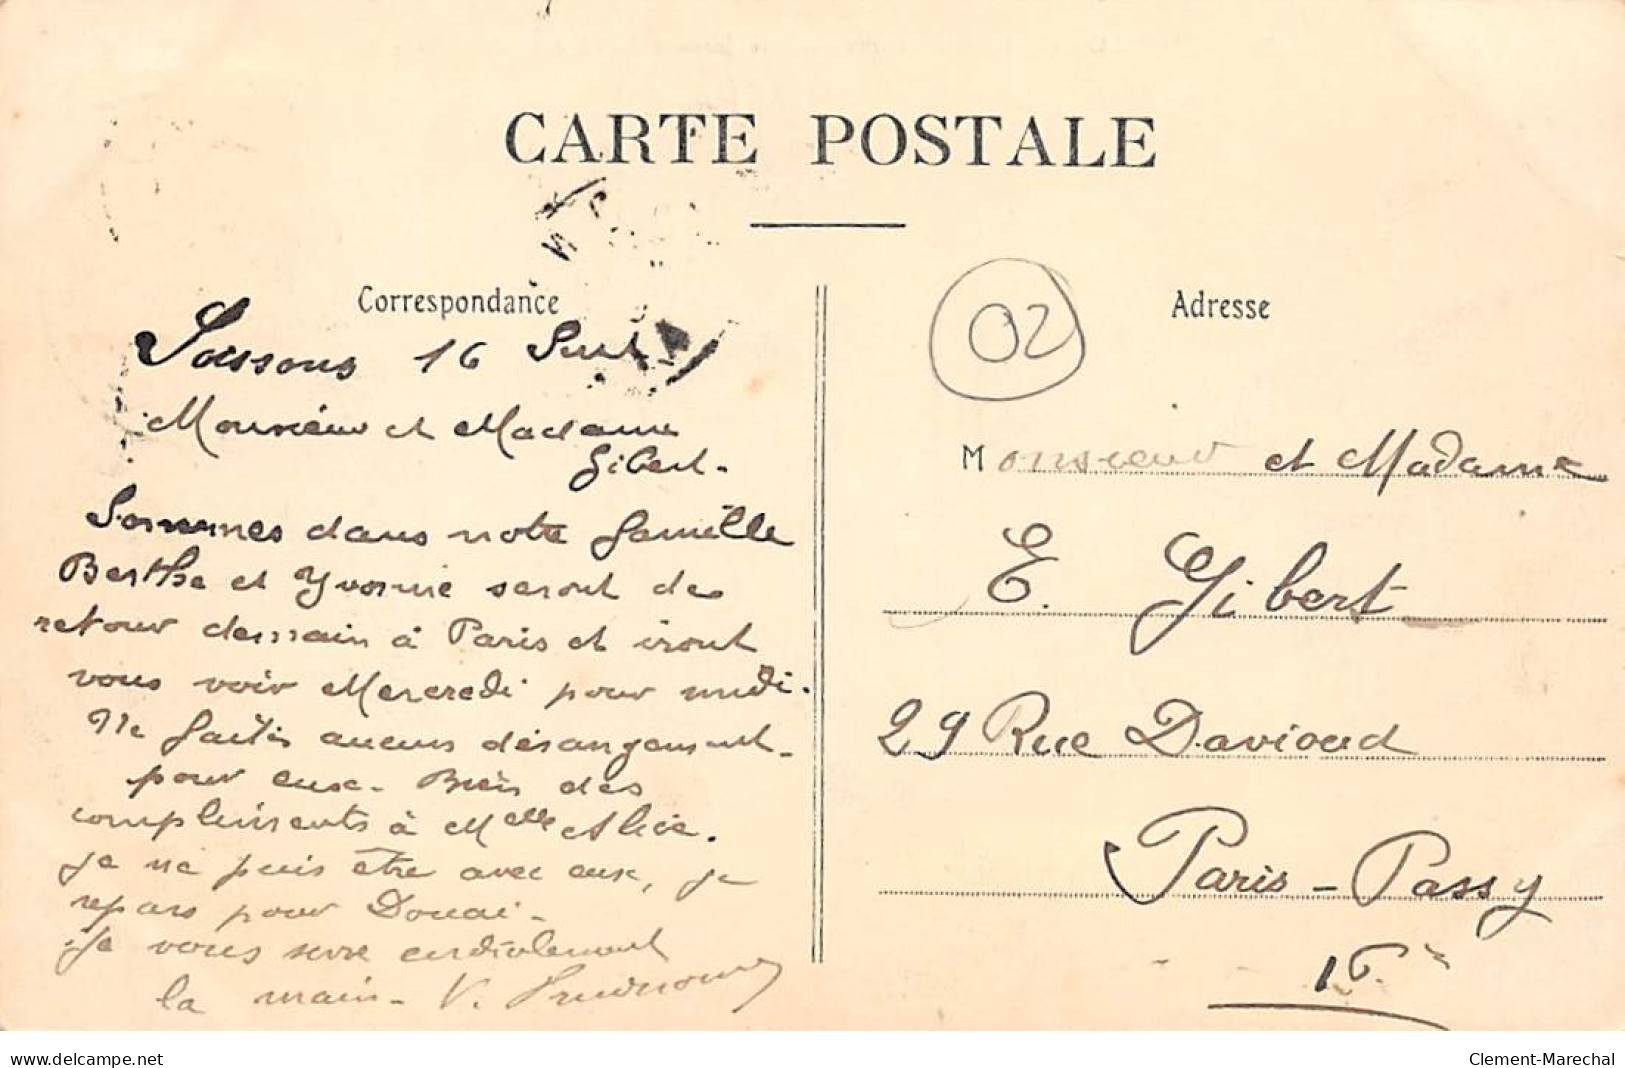 CARTE POSTALE
Correspondance
Soissons 16 Sept.
Monsieur et Madame
Gibert.
Sommes dans notre famille
Berthe et Yvonne seront de
retour demain à Paris et iront
vous voir Mercredi pour midi.
Ne faites aucun désangement
pour eux. Bien des
compliments à Melle Alice.
Je ne puis être avec eux, je
repars pour Douai.
Je vous serre cordialement
la main. V.
02
Adresse
Monsieur et Madame
E. Gibert
29 Rue Davioud
Paris-Passy
16è
www.delcampe.net
Clement-Marechal